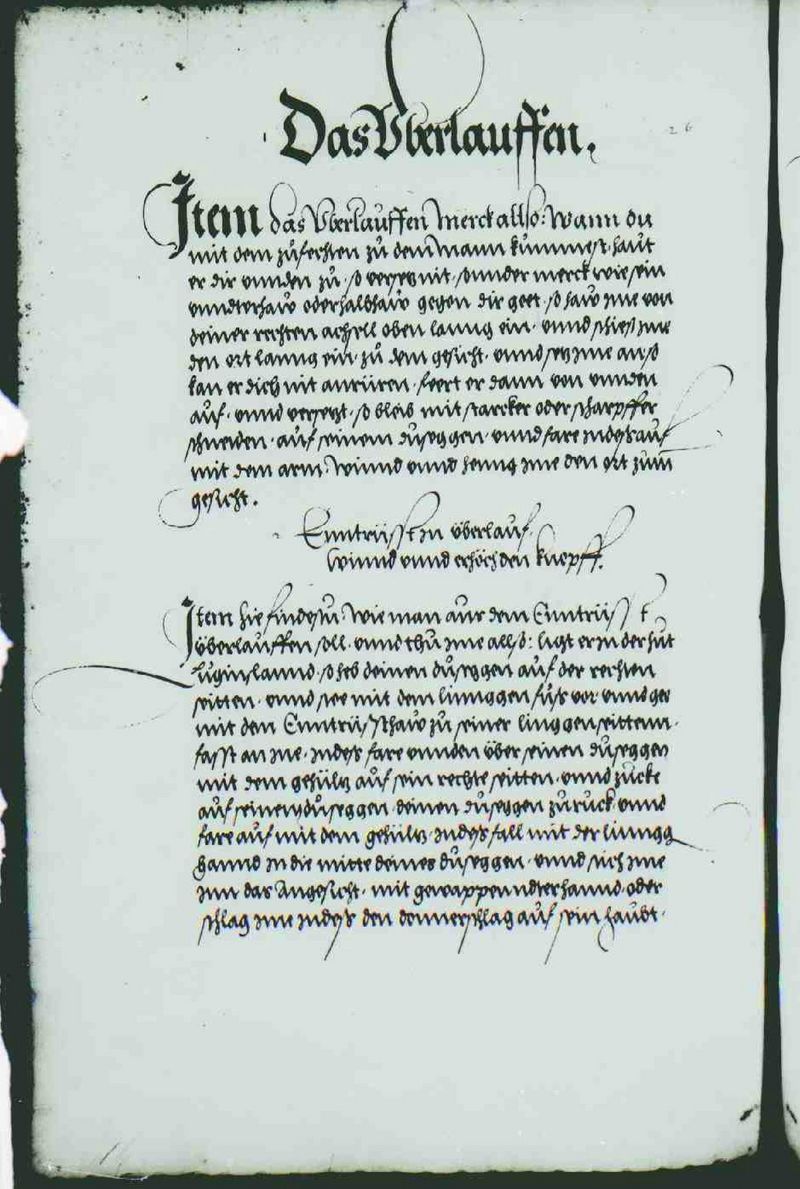 Das Vberlauffen.
26
Item das Vberlauffen merck allso: Wann du
mit dem zůfechten zů dem mann kummest, haut
er dir vnnden zů, so versetz nit, sonnder merck wie sein
vnndterhaw oder halbhaw gegen dir geet, so haw jme von
deiner rechten achssell oben lanng ein, vnnd schieß jme
den ort lanng ein zů dem gesicht, vnnd setz jme an, so
kan er dich nit anrüren, feert er dann von vnnden
auf, vnnd versetzt, so bleib mit starcker oder scharpffer
schneiden, auf seinem důseggen, vnnd fare jndeß auf
mit dem arm, winnd vnnd heng jme den ort zum
gesicht.
Enntrüsst jn überlauf,
winnd vnnd erhöch den knepff.
Item hie findestu, wie man aus dem Enntrüsst
überlauffen soll, vnnd thů jme allso: ligt er in der hůt
Luginslannd, so heb deinen důseggen auf der rechten
seitten, vnnd stee mit dem linnggen fůß vor, vnnd gee
mit den Enntrüsthaw zů seiner linggen seittenn,
fasst an jne, jndeß fare vnnden über seinen důseggen
mit dem gehültz auf sein rechte seitten, vnnd zucke
auf seinem důseggen, deinen důseggen zůruck, vnnd
fare auf mit dem gehültz, jndeß fall mit der linngg
hannd in die mitte deines důseggen, vnnd stich jme
jnn das Angesicht, mit gewappenndter hannd, oder
schlag jme jndeß den donnerschlag auf sein haubt.